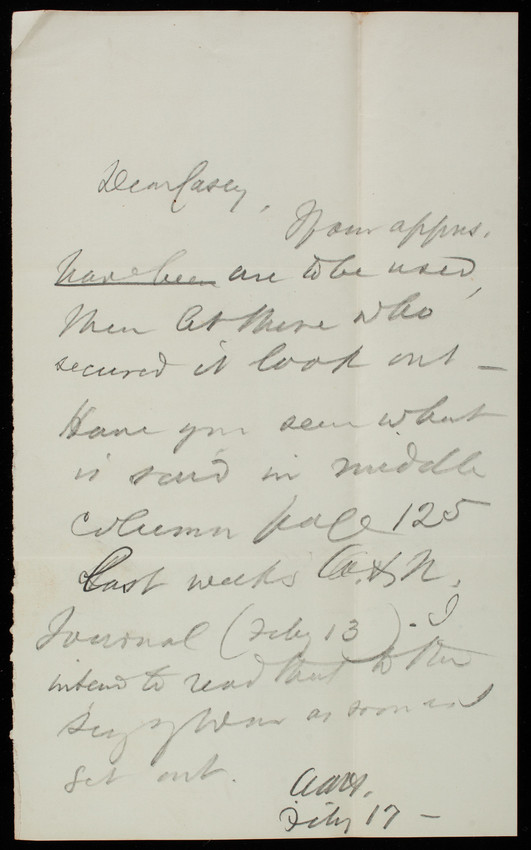 Dear Casey,
If our apprs.
have been are to be used,
then let those who
secured it look out —
Have you seen what
is said in middle
column page 125
Last weeks A. & N.
Journal (Feby 13). I
intend to read that to the
Secy of War as soon as I
get out.
Feby 17 —